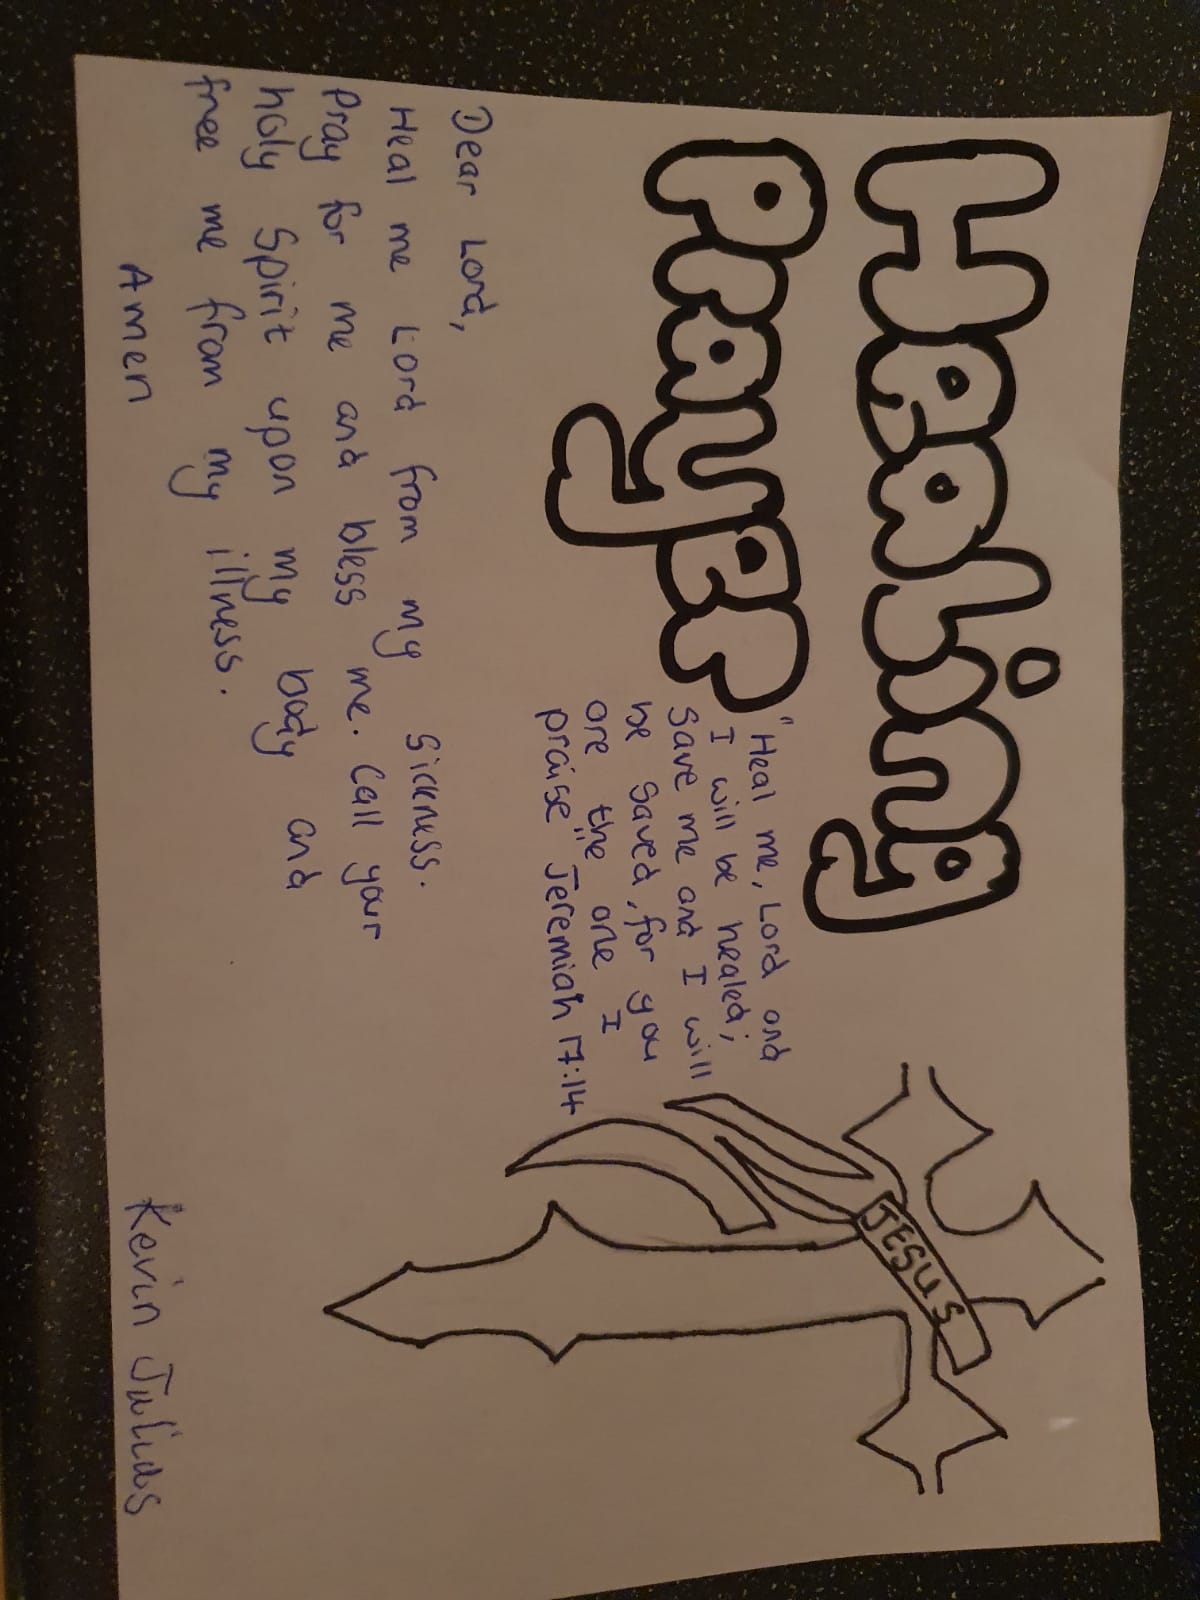 Healing
Prayer
"Heal me, Lord and
I will be healed;
save me and I will
be saved, for you
are the one I
praise" Jeremiah 17:14
JESUS
Dear Lord,
Heal me Lord from my sickness.
Pray for me and bless me. Call your
holy Spirit upon my body and
free me from my illness.
Amen
Kevin Julius